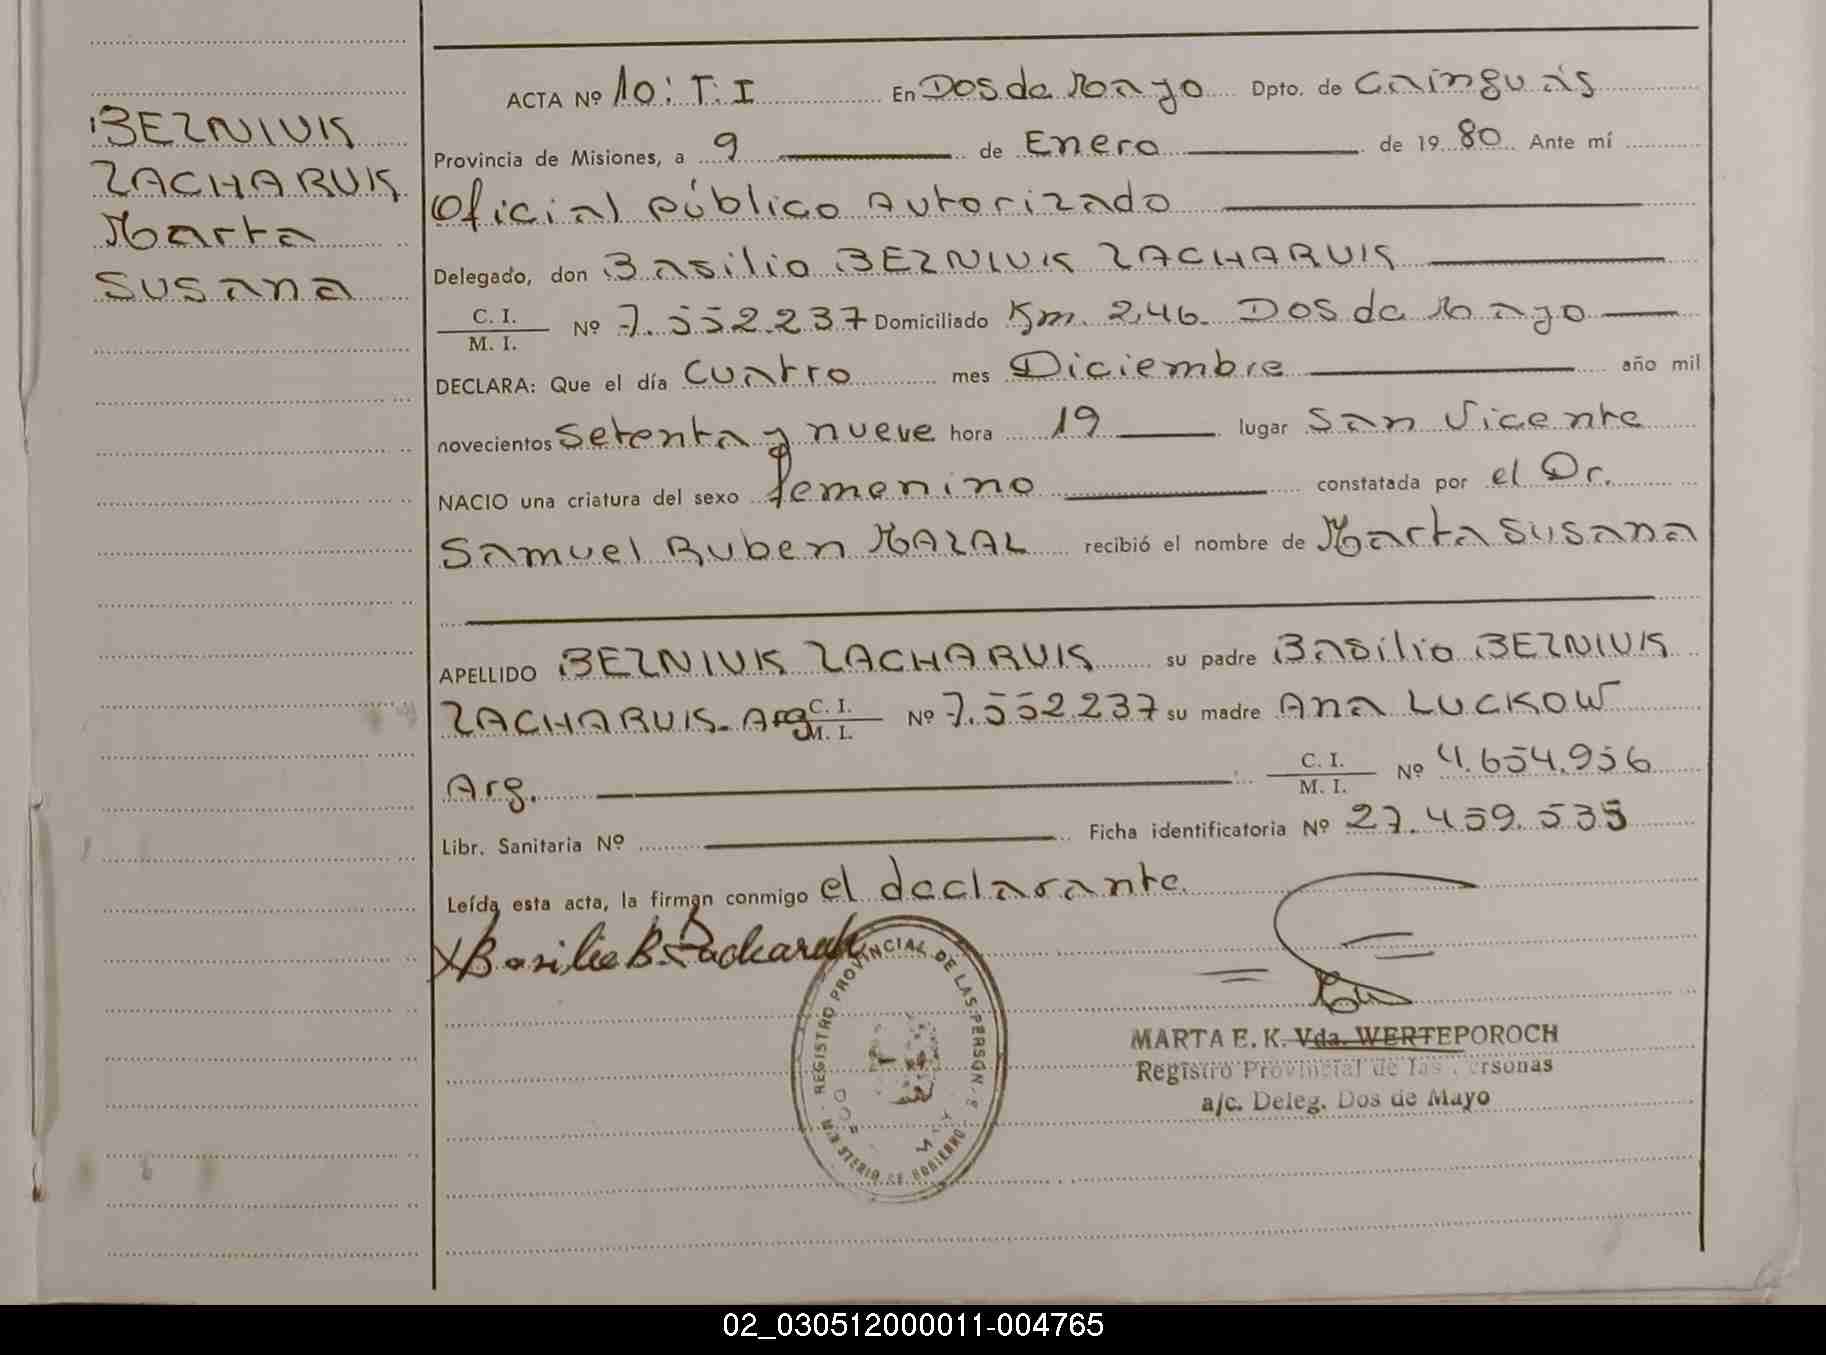 BEZNIUK
ZACHARUK
Marta
Susana
ACTA Nº 10: T. I En Dos de Mayo Dpto. de Cainguás
Provincia de Misiones, a 9 de Enero de 1980 Ante mí
Oficial Público Autorizado
Delegado, don Basilio BEZNIUK ZACHARUK
C. I.
M. I. Nº 7.552.237 Domiciliado Km. 246. Dos de Mayo
DECLARA: Que el día cuatro mes Diciembre año mil
novecientos setenta y nueve hora 19 lugar San Vicente
NACIO una criatura del sexo femenino constatada por el Dr.
Samuel Ruben MAZAL recibió el nombre de Marta Susana
APELLIDO BEZNIUK ZACHARUK su padre Basilio BEZNIUK
ZACHARUK. Arg. C. I. M. I. Nº 7.552.237 su madre Ana LUCKOW
Arg. C. I. M. I. Nº 4.654.956
Libr. Sanitaria Nº Ficha identificatoria Nº 27.459.535
Leída esta acta, la firman conmigo el declarante.
X Basilio B. Zacharuk
REGISTRO PROVINCIAL DE LAS PERSON
DE GOBIERNO
MARTA E. K. Vda. WERTEPOROCH
Registro Provincial de las Personas
a/c. Deleg. Dos de Mayo
02_030512000011-004765